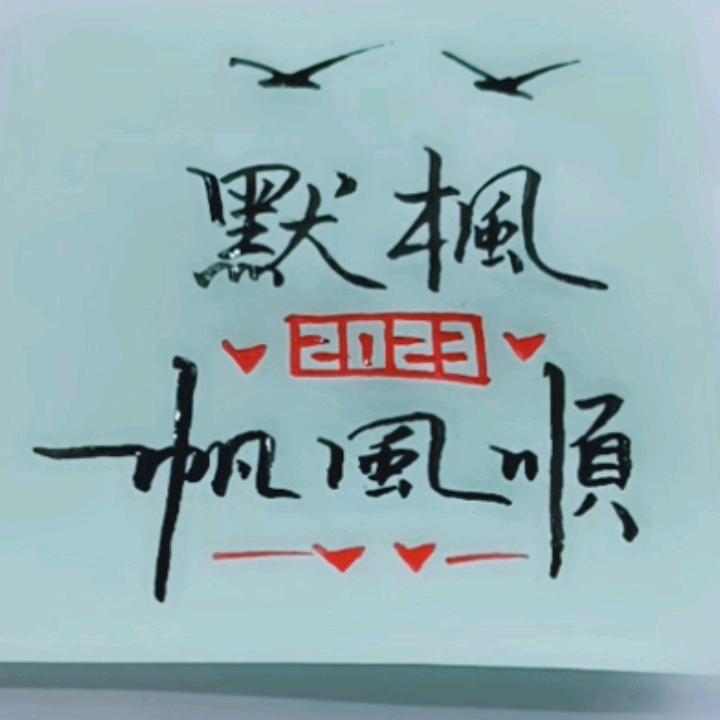 默楓
2023
一帆風順